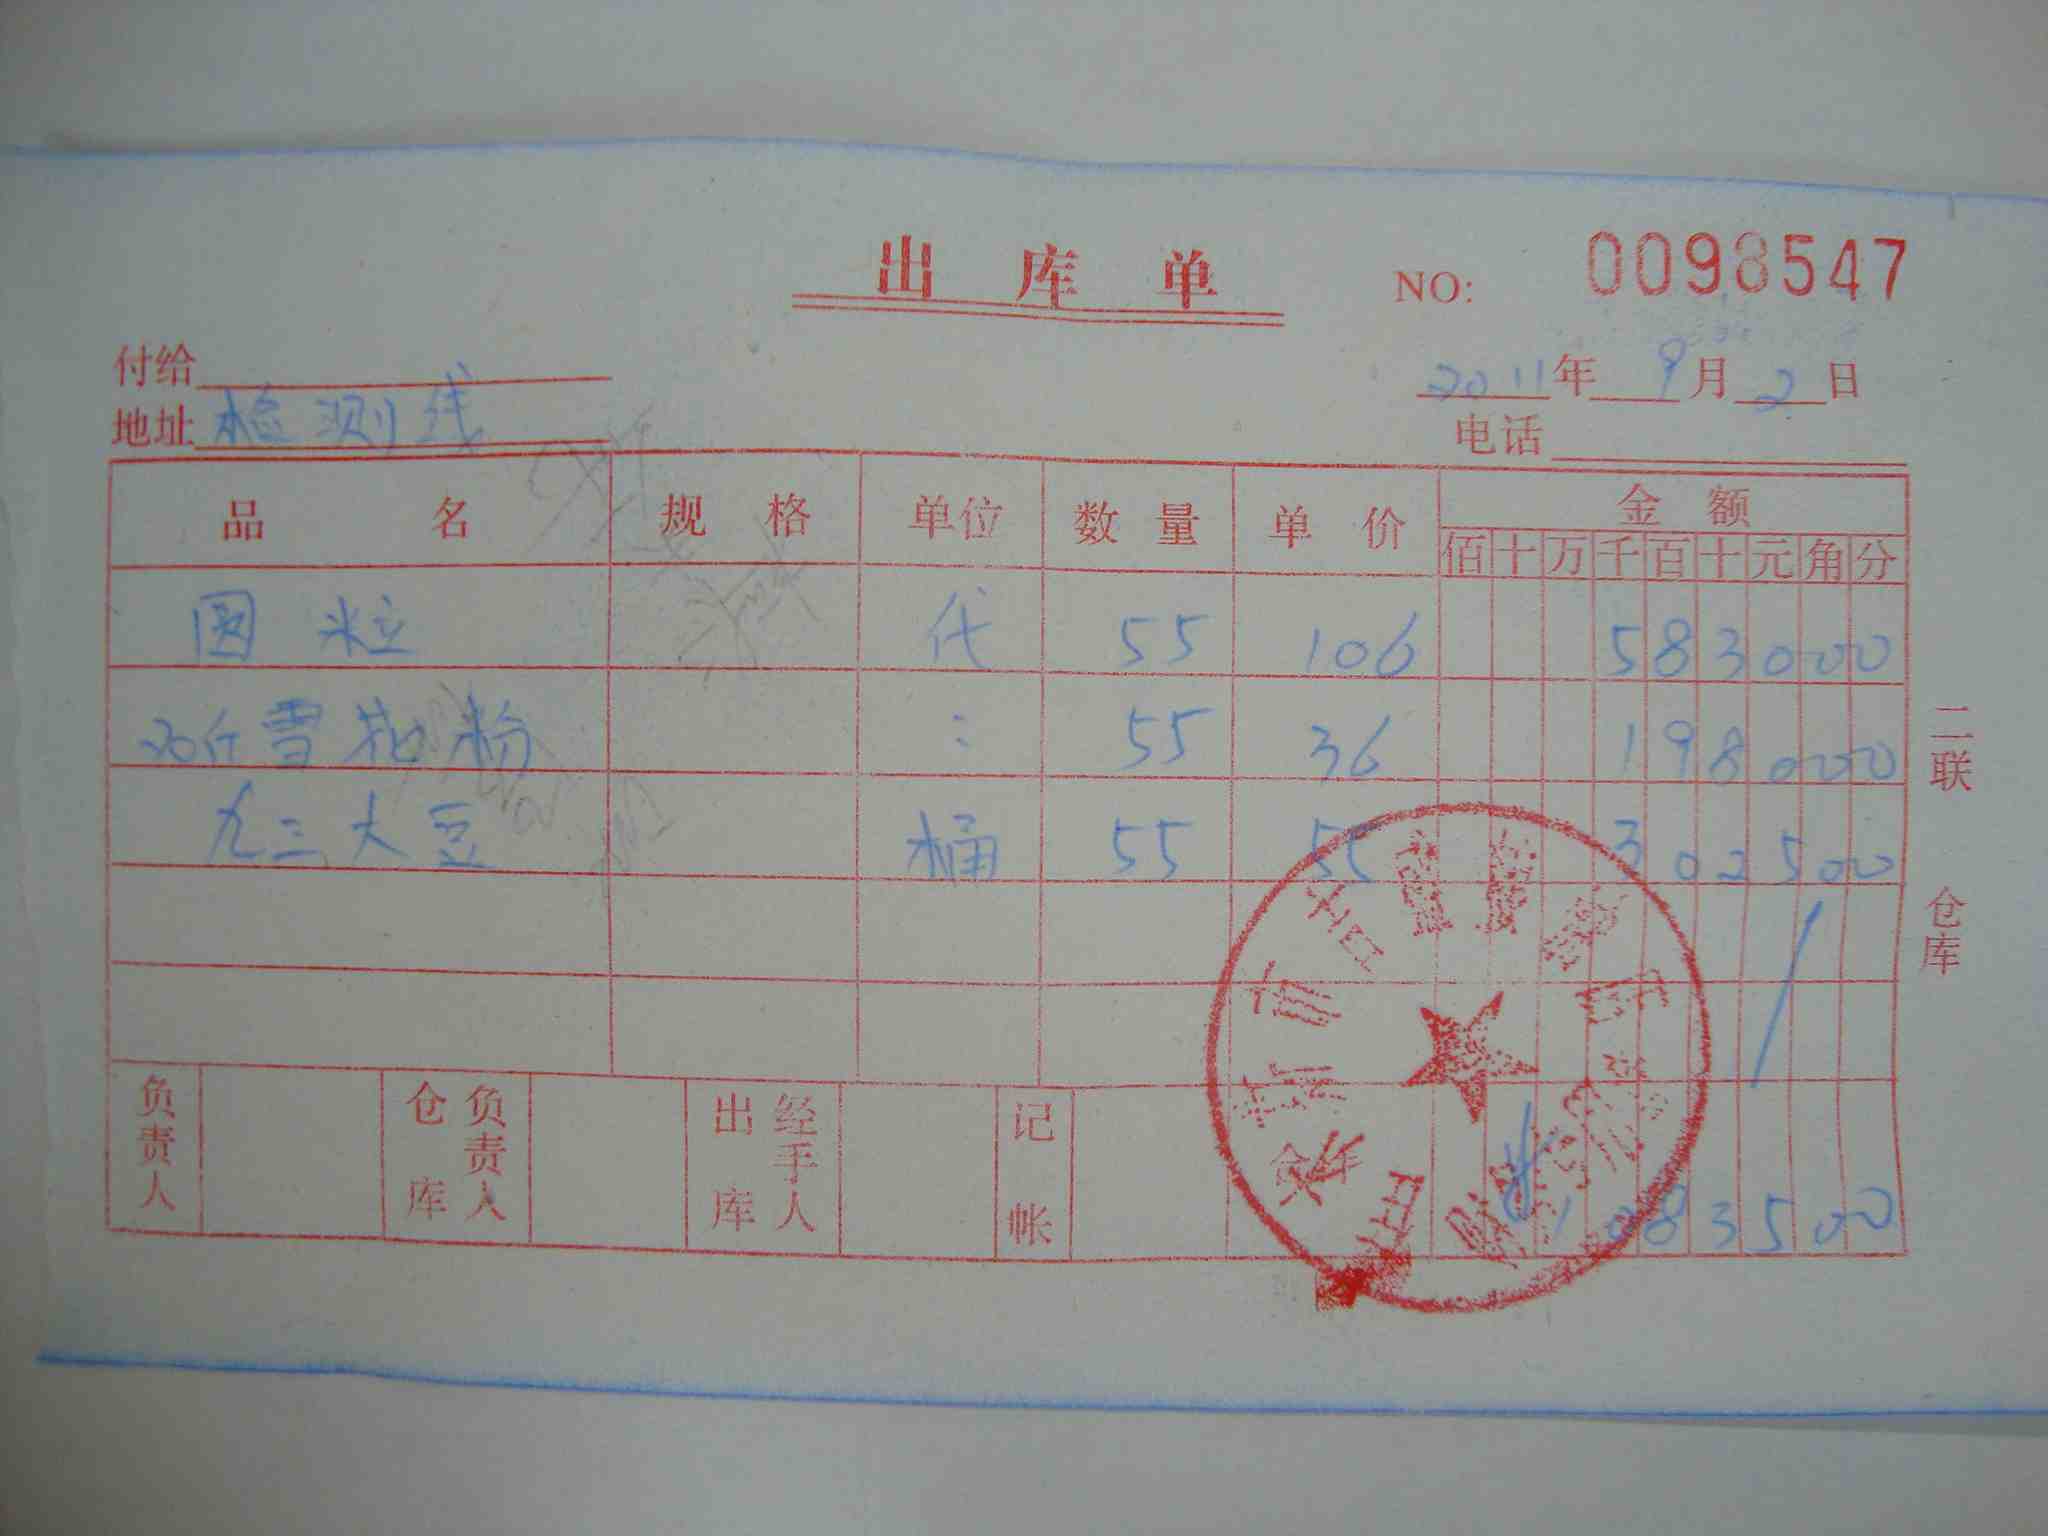 出库单 NO: 0098547
付给 2011年9月2日
地址 检测线 电话
品名 规格 单位 数量 单价 金额
佰 十 万 千 百 十 元 角 分
圆粒 代 55 106 5 8 3 0 0 0
20斤雪花粉 : 55 36 1 9 8 0 0 0
九三大豆 桶 55 55 3 0 2 5 0 0
二联 仓库
负责人 仓库负责人 出库经手人 记帐 ¥ 1 0 8 3 5 0 0